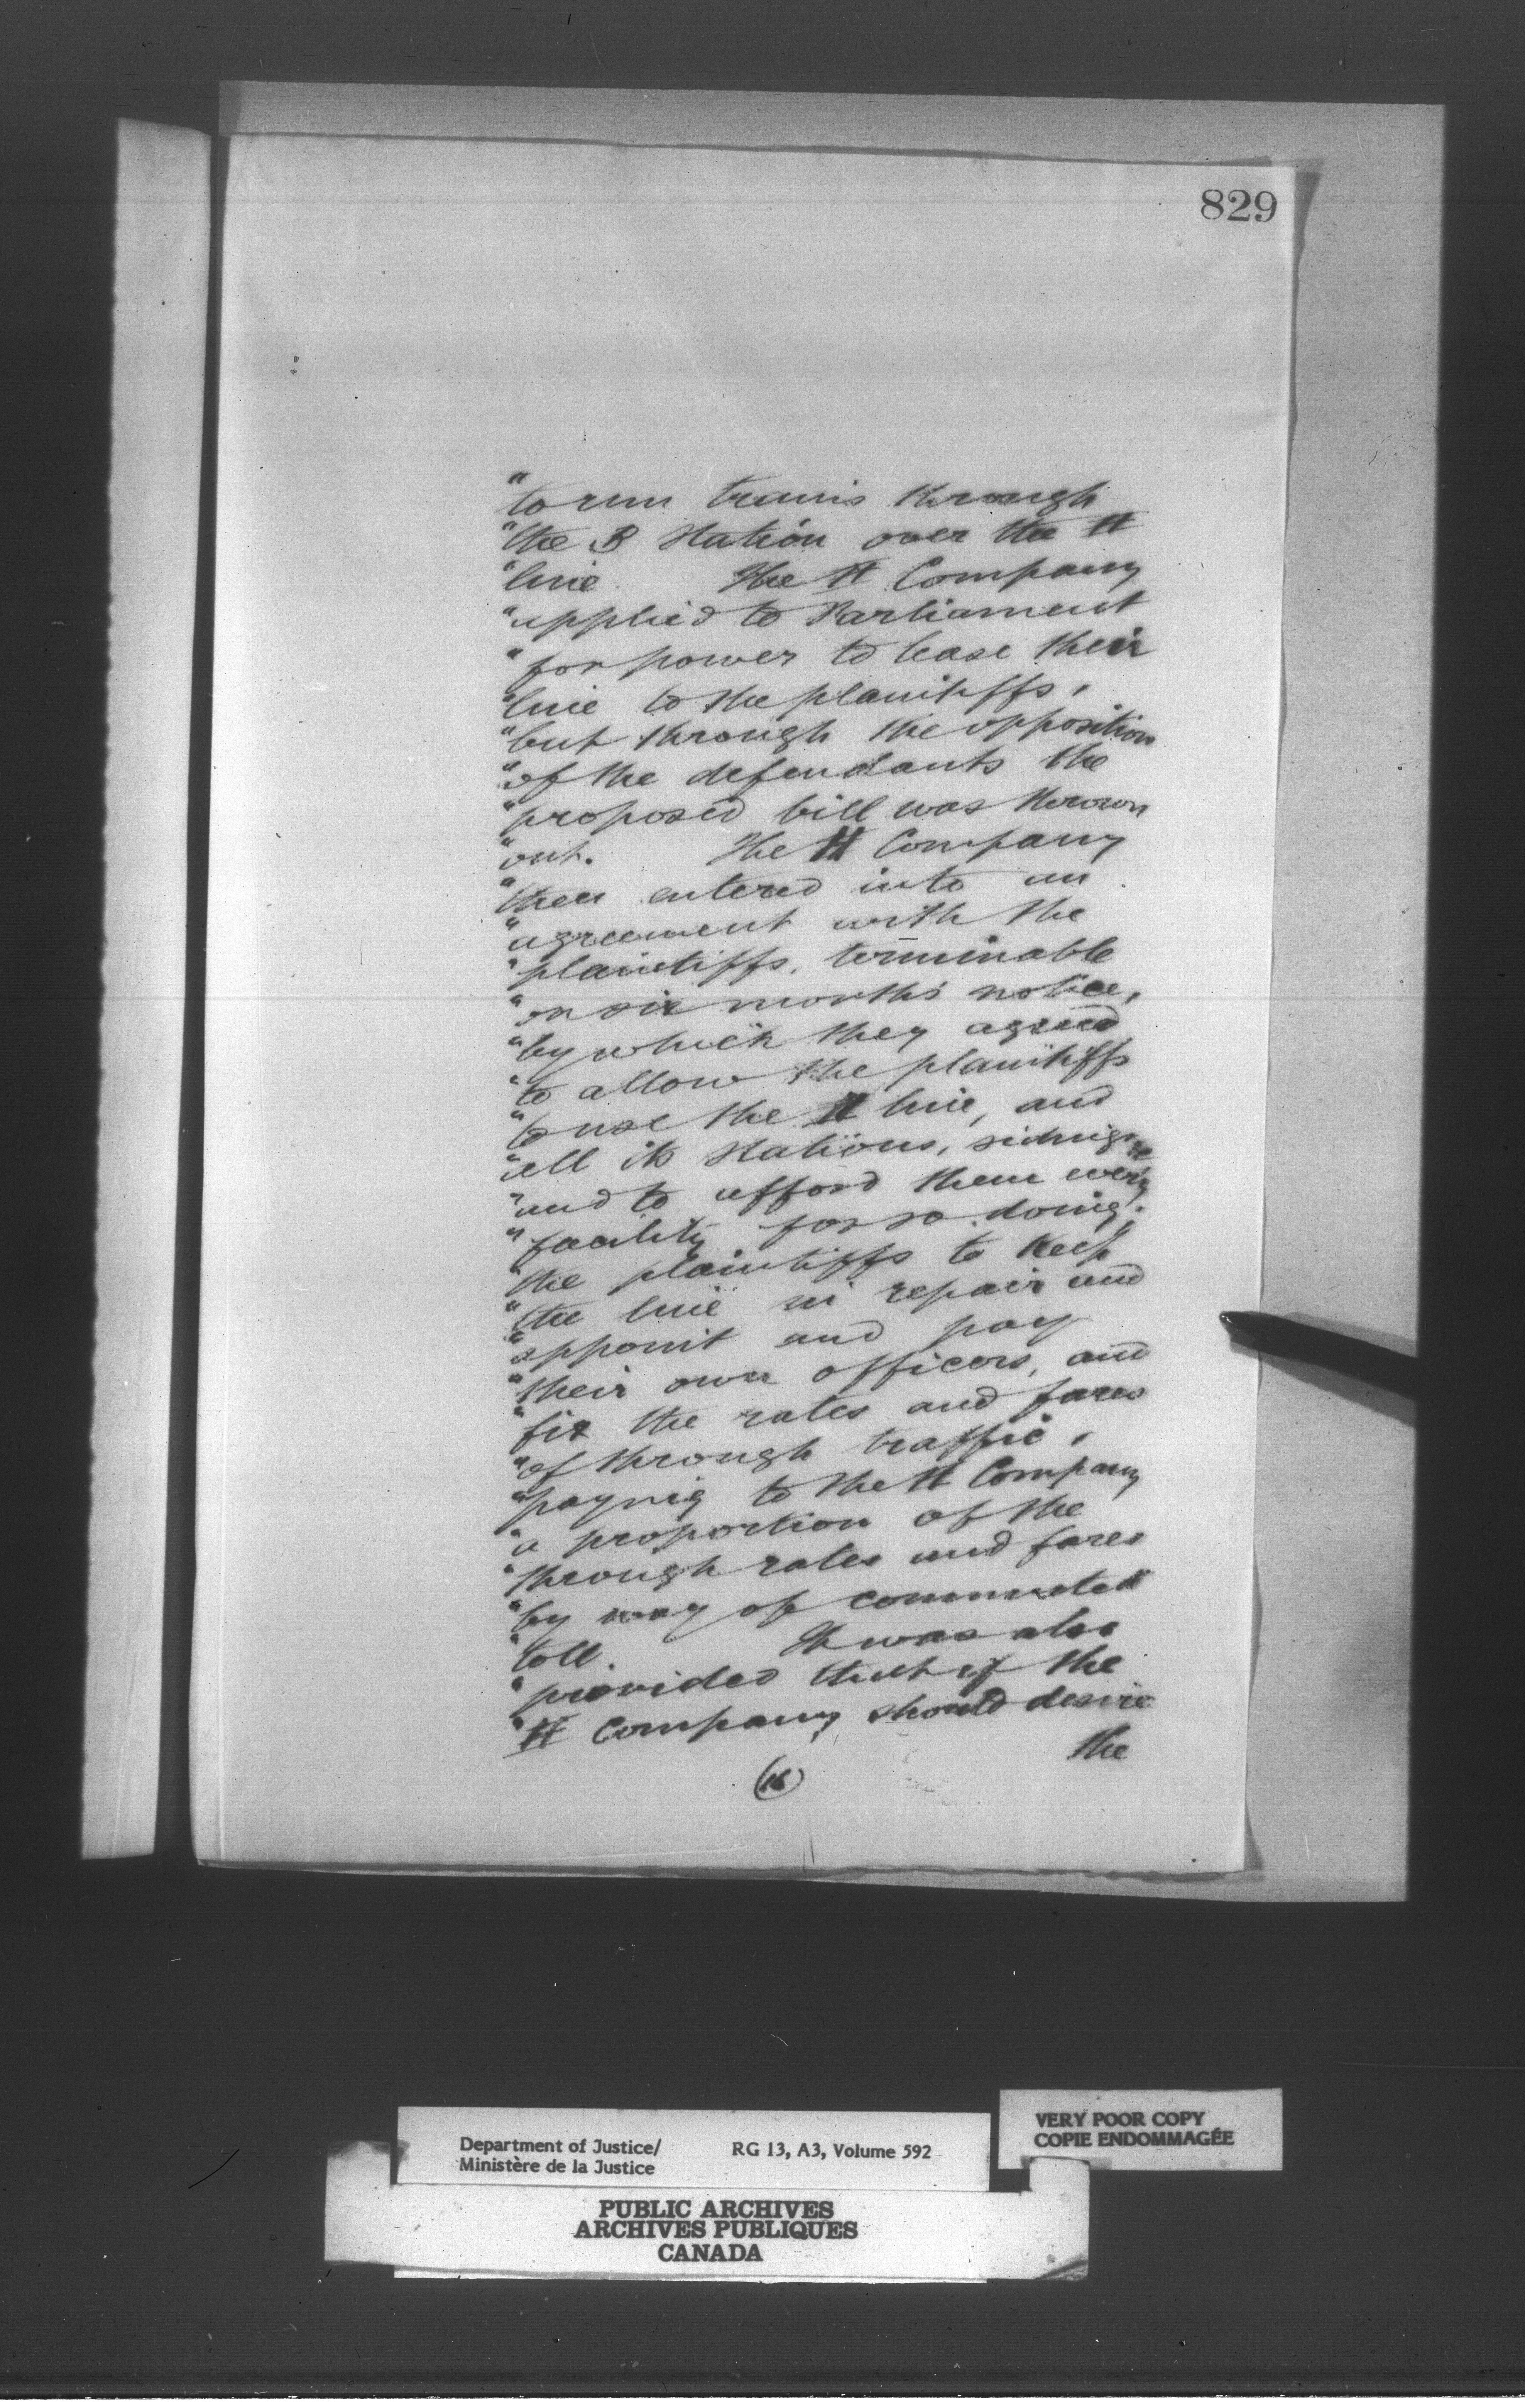 829
"to run trains through
"the B Station over the H
"line. The H Company
"applied to Parliament
"for power to lease their
"line to the plaintiffs,
"but through the opposition
"of the defendants the
"proposed bill was thrown
"out. The H Company
"then entered into an
"agreement with the
"plaintiffs, terminable
"on six months' notice,
"by which they agreed
"to allow the plaintiffs
"to use the H line, and
"all its stations, sidings &c
"and to afford them every
"facility for so doing;
"the plaintiffs to keep
"the line in repair and
"appoint and pay
"their own officers, and
"fix the rates and fares
"of through traffic,
"paying to the H Company
"a proportion of the
"through rates and fares
"by way of commuted
"toll. It was also
"provided that if the
"H Company should desire
the
(16)
Department of Justice/
Ministère de la Justice
RG 13, A3, Volume 592
VERY POOR COPY
COPIE ENDOMMAGÉE
PUBLIC ARCHIVES
ARCHIVES PUBLIQUES
CANADA